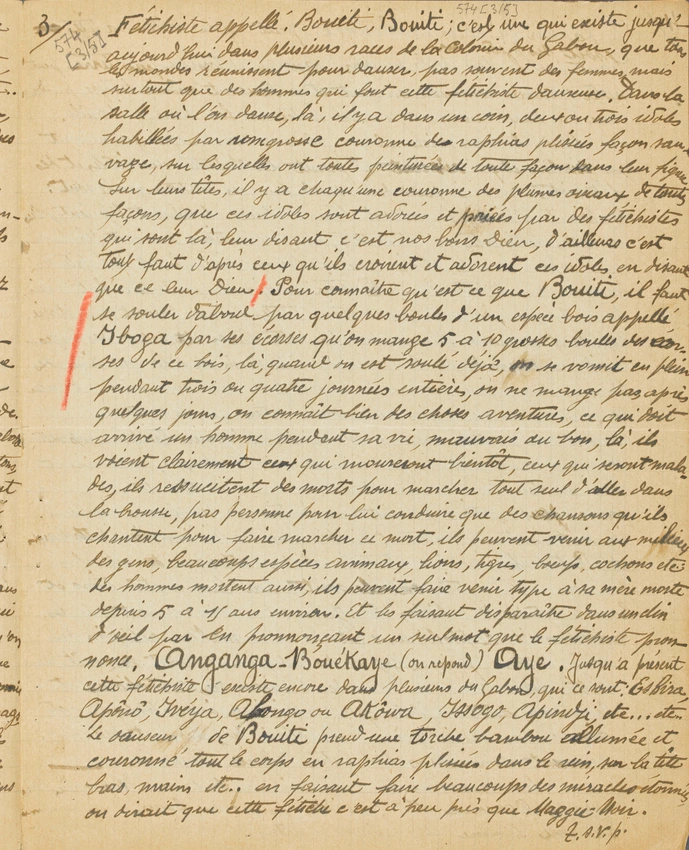 3/ Fétichiste appellé. Bouëti, Bouiti; c'est une qui existe jusqu'
574 [3/5]
574 [3/5]
aujourd'hui dans plusieurs races de la Colonie du Gabon, que tous
les mondes réunissent pour danser, pas souvent des femmes, mais
surtout que des hommes qui font cette fétichiste danseuse. Dans la
salle où l'on danse, là, il y a dans un coin, deux ou trois idoles
habillées par une grosse couronne des raphias plissées façon sau-
vage, sur lesquelles ont toutes peinturées de toute façon dans leur figure
Sur leurs têtes, il y a chaqu'une couronne des plumes oiseaux de toutes
façons, que ces idoles sont adorées et priées par des fétichistes
qui sont là, leur disant c'est nos bons Dieu, d'ailleurs c'est
tout faut d'après ceux qu'ils croirent et adorent ces idoles en disant
que ce leur Dieu / Pour connaître qu'est ce que Bouiti, il faut
se souler d'abord par quelques boules d'un espèce bois appellé
Iboga par ses écorses qu'on mange 5 à 10 grosses boules des écor-
ses de ce bois, là, quand on est soulé déjà, on se vomit en plein
pendant trois ou quatre journées entière, on ne mange pas, après
quelques jours, on connaît bien des choses aventures, ce qui doit
arrivé un homme pendant sa vie, mauvais ou bon, là, ils
voient clairement ceux qui mouseront bientôt, ceux qui seront mala-
des, ils ressucitent des morts pour marcher tout seul d'aller dans
la brousse, pas personne pour lui conduire que des chansons qu'ils
chantent pour faire marcher ce mort, ils peuvent venir aux milieux
des gens, beaucoups espèces animaux, lions, tigres, boeufs, cochons etc:
des hommes mortent aussi, ils peuvent faire venir type à sa mère morte
depuis 5 à 11 ans environ. Et les faisant disparaître dans un clin
d'oeil par en pronnonçant un seul mot que le fétichiste pron-
nonce. Anganga-Bouékaye (on repond) Aye. Jusqu'à présent
cette fétichiste existe encore dans plusieurs du Gabon, qui ce sont: Eshira
Apônô, Iveya, Abongo ou Akôwa, Issogo, Apindji, etc... etc..
Le danseur de Bouiti prend une torche bambou allumée et
couronné tout le corps en raphias plissées dans le rein, sur la tête
bras, mains etc.. en faisant faire beaucoups des miracles étonnés,
on dirait que cette fétiche c'est à peu près que Maggie-Noir.
T.S.V.P.